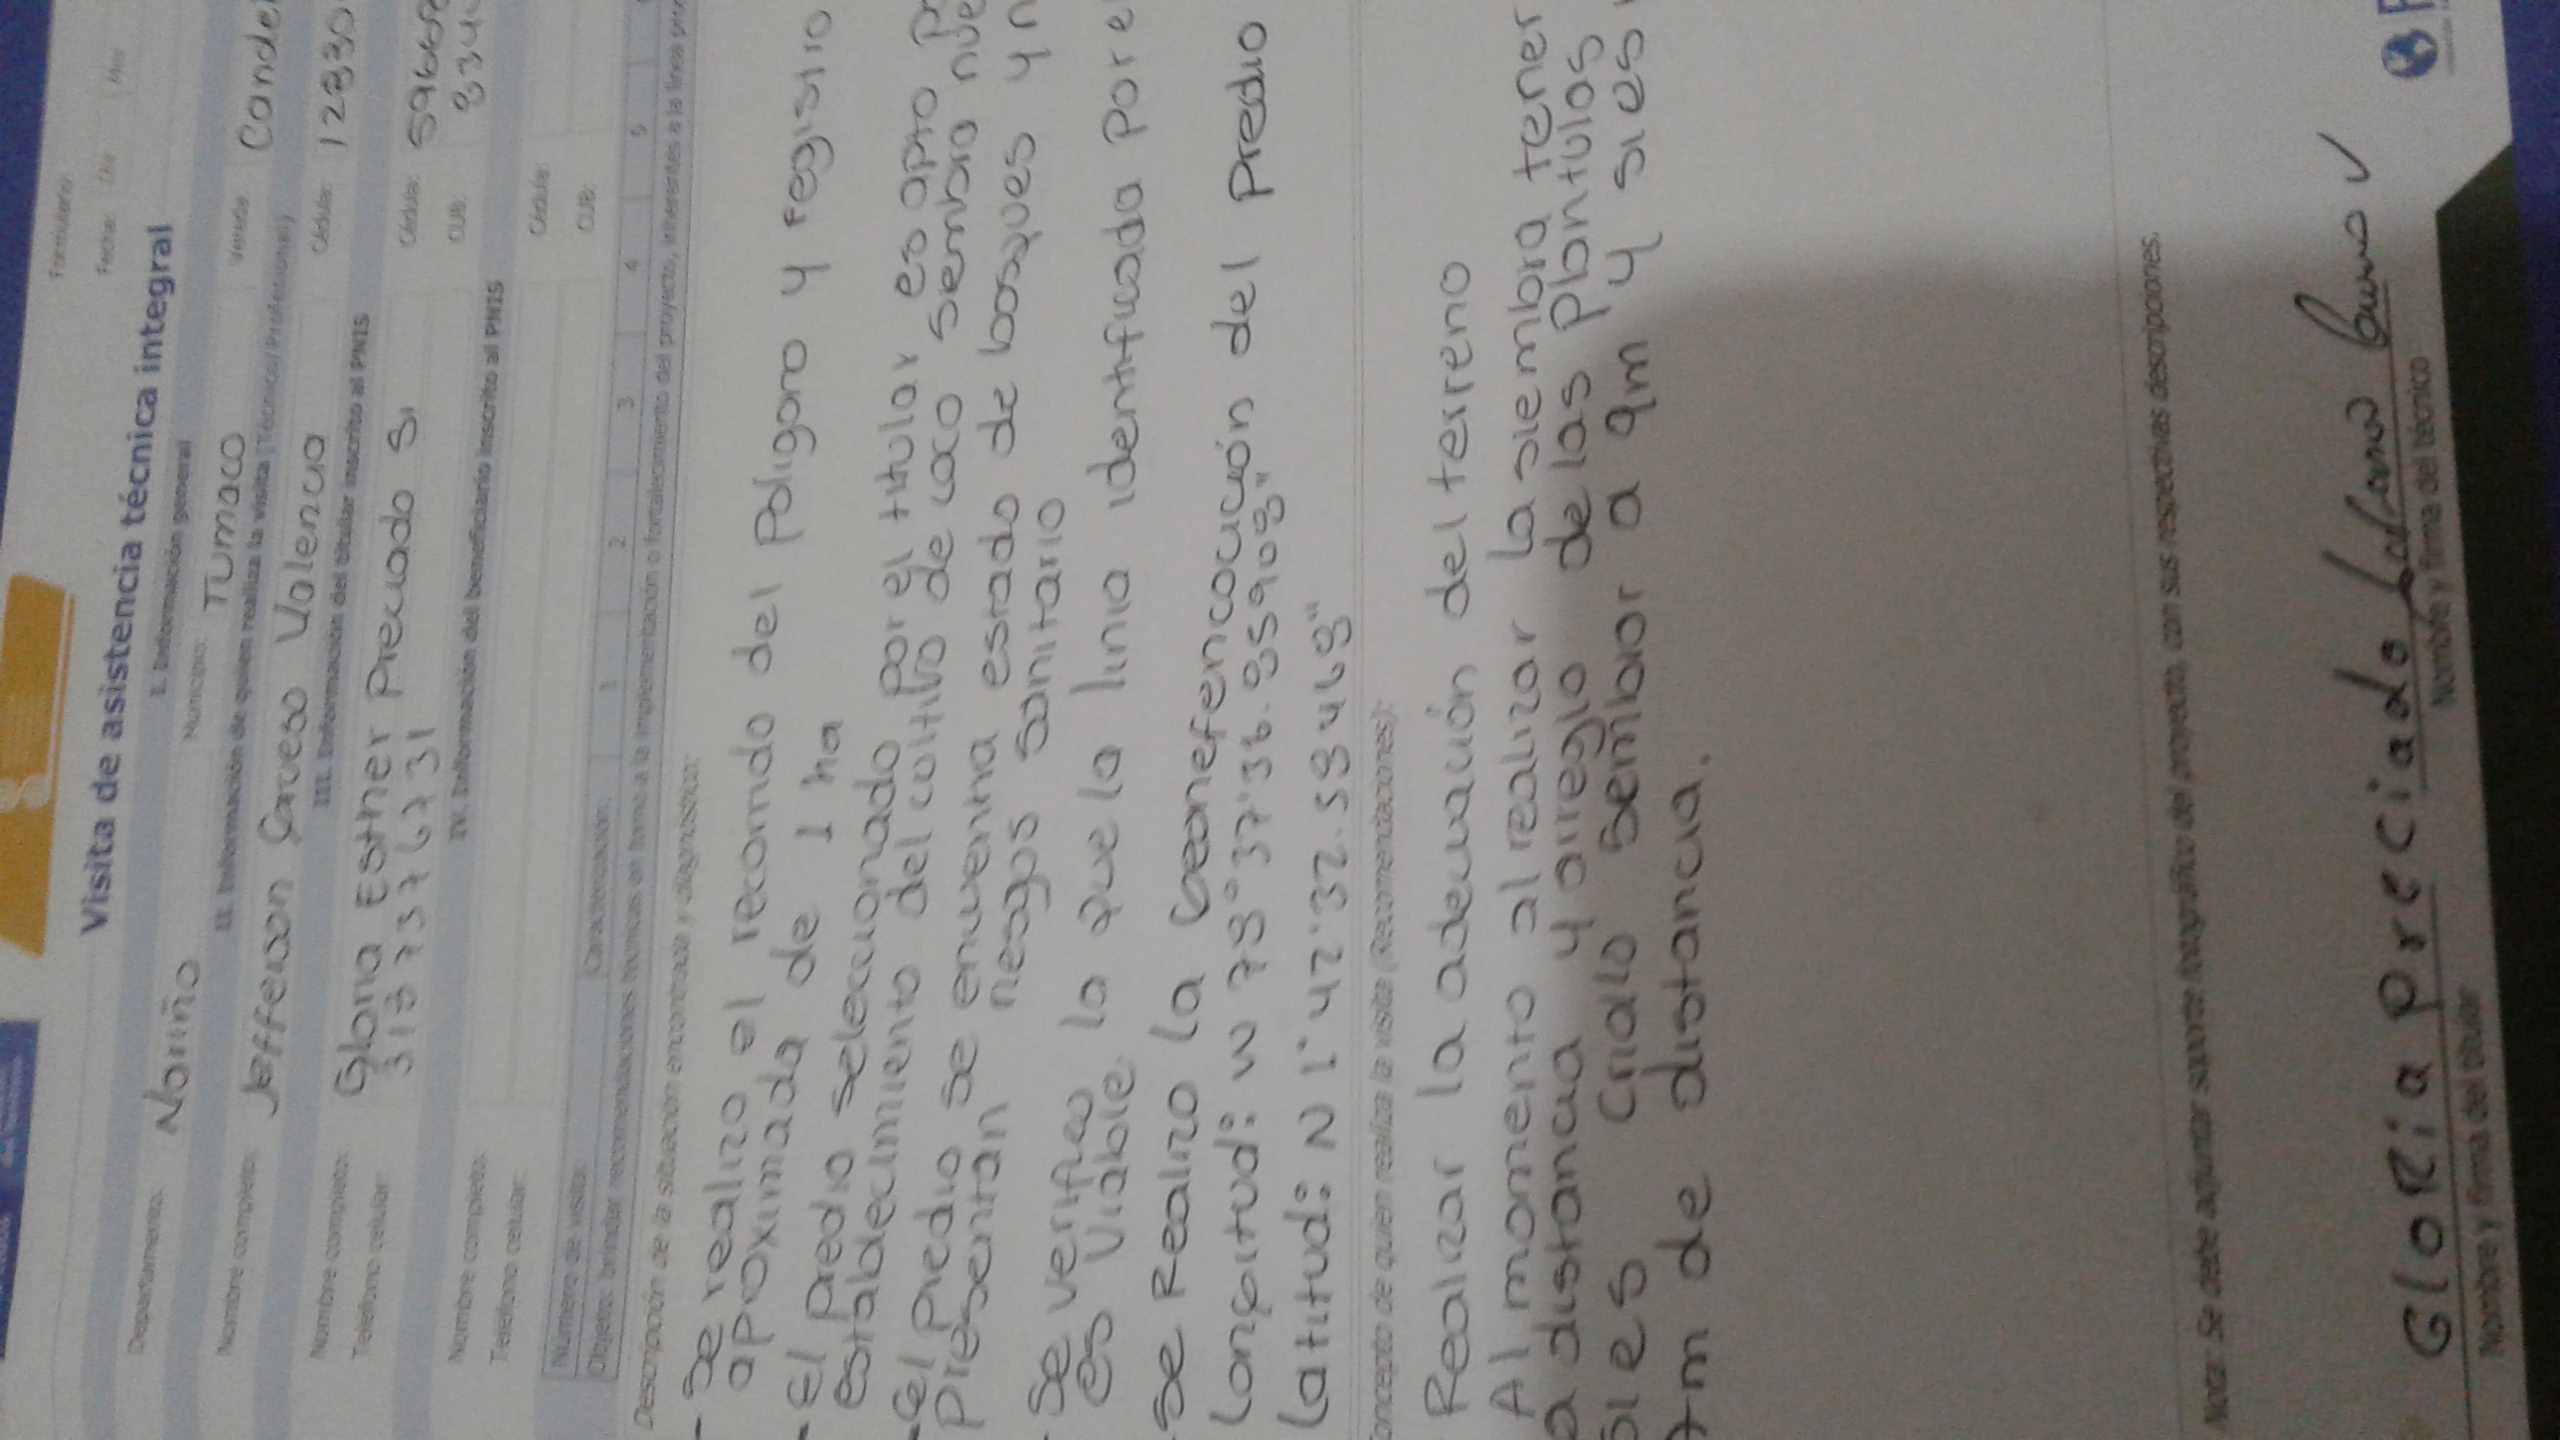 Formulario:
Fecha: Día Mes
Visita de asistencia técnica integral
I. Información general
Departamento: Nariño Municipio: Tumaco Vereda: Candel
II. Información de quien realiza la visita (Técnico/Profesional)
Nombre completo: Jefferson Garceso Valencia Cédula: 12830
III. Información del titular inscrito al PNIS
Nombre completo: Gloria Esther Preciado Si Cédula: 59668
Teléfono celular: 3137376731 CUB:
IV. Información del beneficiario inscrito al PNIS
Nombre completo: Cédula:
Teléfono celular: CUB:
Número de visita: Caracterización: 1 2 3 4 5
Objeto: brindar recomendaciones técnicas en torno a la implementación o fortalecimiento del proyecto, inherentes a la línea pro
Descripción de la situación encontrada y diagnóstico:
- Se realizo el recorrido del Poligono y registro
aproximada de 1 ha
- El predio seleccionado por el titular es apto pa
establecimiento del cultivo de coco sembra nue
- El predio se encuentra estado de bosques y n
presentan riesgos sanitario
- Se verifico lo que la linia identificada por e
es viable.
- Se Realizo la Georeferencocución del Predio
Longitud: W 78°37'36.85908"
Latitud: N 1°42'32.58468"
Concepto de quien realiza la visita (Recomendaciones):
Realizar la adecuación del terreno
Al momento al realizar la siembra tener
a distancia y arreglo de las plantulas
si es criallo sembrar a 9m y si es
7m de distancia.
Nota: Se debe adjuntar soporte fotográfico del proyecto, con sus respectivas descripciones.
Gloria Preciado
Nombre y firma del titular Nombre y firma del técnico